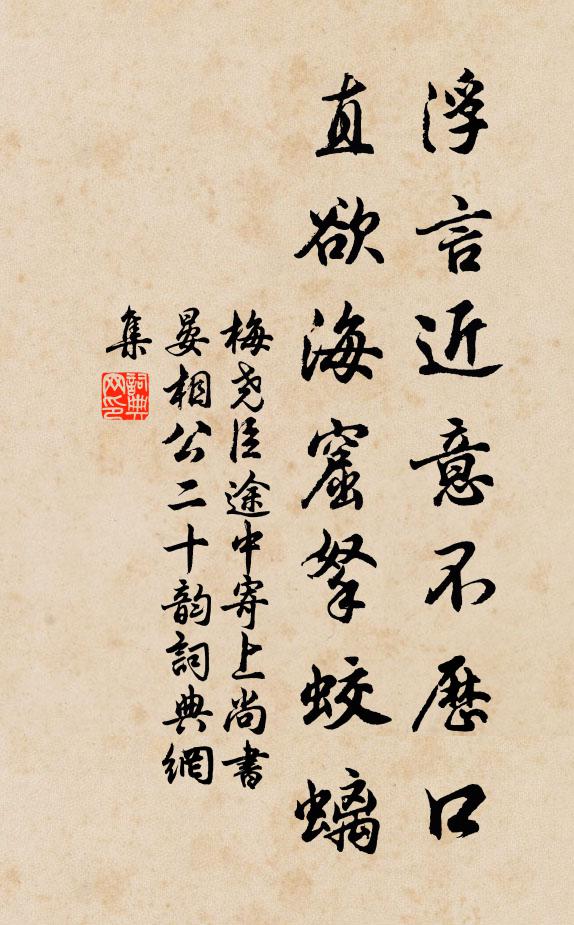 浮言近意不歷口
直欲海窟拏蛟螭
梅堯臣途中寄上尚書
晏相公二十韵詞典網
集
詞典
网印